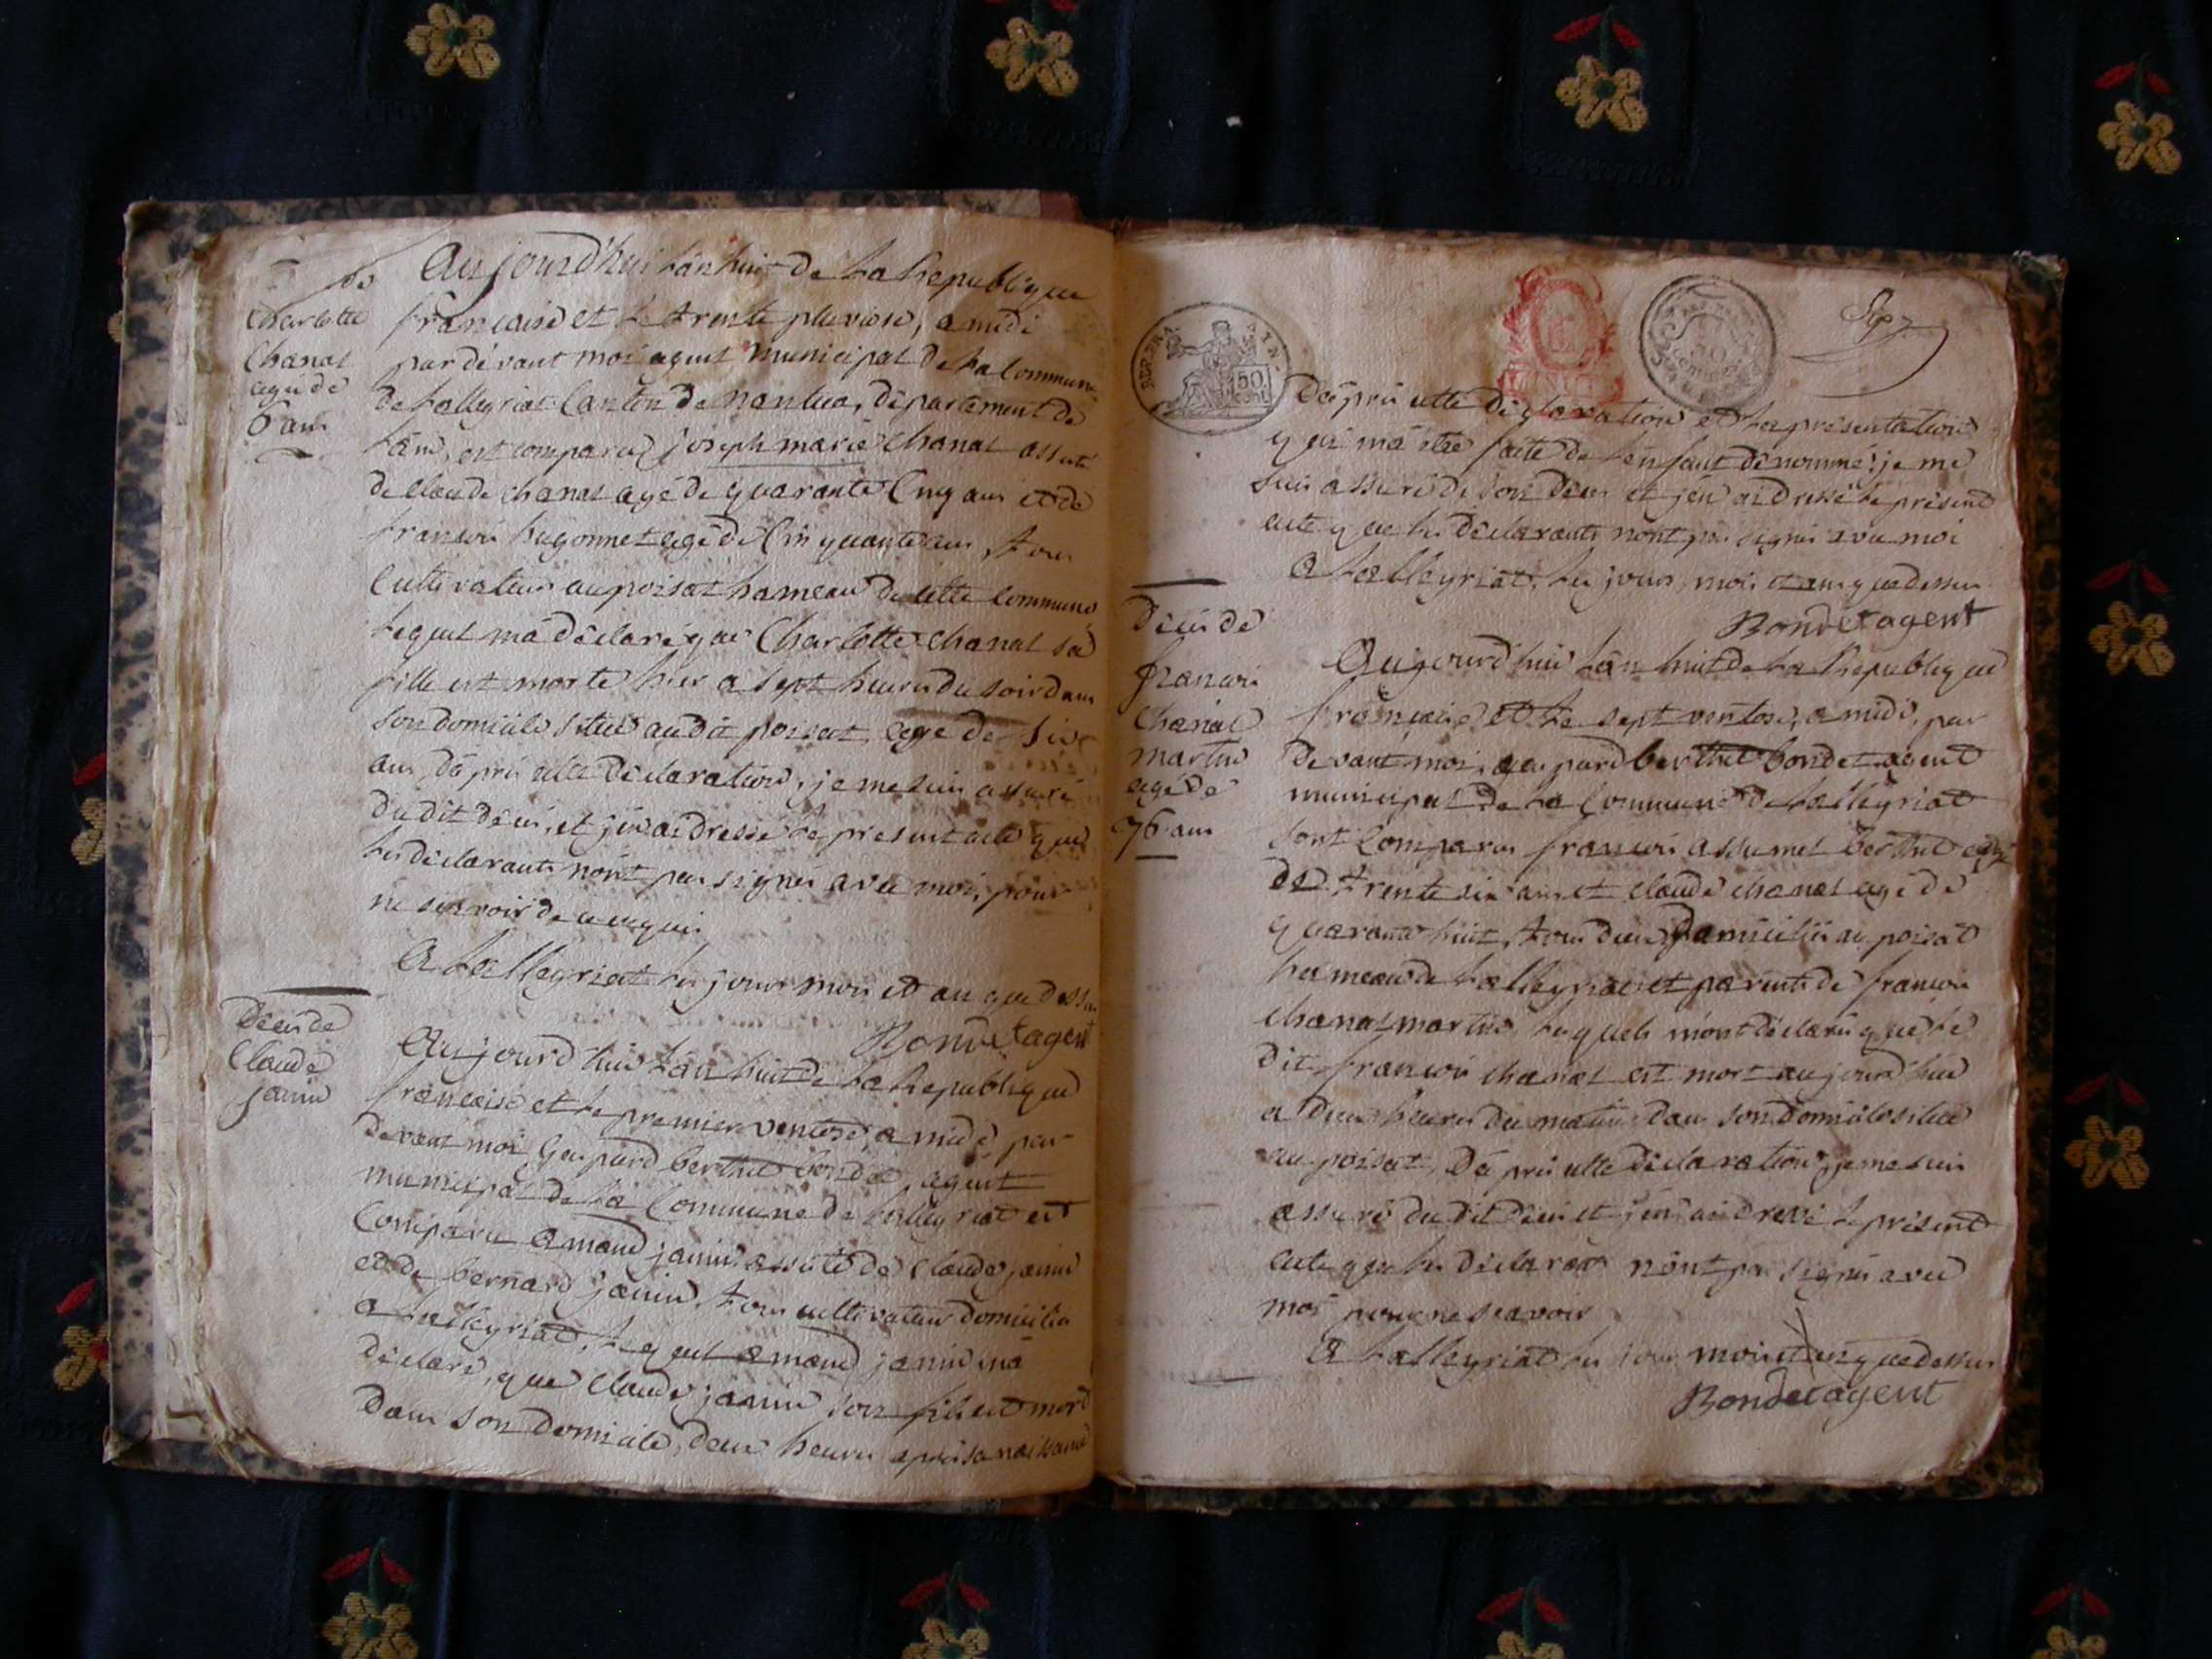 de
Charlotte
Chanal
agé de
6 ans
Aujourd'hui l'an huit de la Republique
francaise et le trente pluviose, a midi
par dévant moi agent municipal de la Commune
de Lalleyriat Canton de nantua, département de
l'ain, est comparu joseph marie Chanal assisté
de claude chanal agé de quarante Cinq ans et de
francois hugonnet agé de Cinquante ans, tous
Cultivateur au poisat hameau de cette Commune
lequel m'a déclaré que Charlotte chanal sa
fille est morte hier a sept heures du soir dans
son domicile situé audit poisat, agé de six
ans, d'aprés cette déclaration, je me suis assuré
du dit décés, et j'en ai dressé le present acte que
les déclarants n'ont pas signés avec moi, pour
ne sçavoir de ce requis
A Lalleyriat les jour mois et an que dessus
Bondet agent
Décés de
Claude
janin
Aujourd'hui l'an huit de la Republique
francaise et le premier ventose a midi, par
devant moi, Gaspard berthet bondet, agent
municipal de la Commune de Lalleyriat est
Comparu amand janin assisté de Claude janin
et de bernard janin, tous cultivateur domicilié
a Lalleyriat, lequel amand janin m'a
déclaré, que Claude janin son fils est mort
dans son domicile, deux heures aprés sa naissance
50
CENT
50
D'aprés cette déclaration et la présentation
qui m'a été faite de l'enfant dénommé, je me
suis assuré de son décés et j'en ai dressé le présent
acte que les déclarants n'ont pas signés avec moi
A Lalleyriat, les jour, mois et an que dessus
Bondet agent
Décés de
francois
Chanal
martin
agé de
76 ans
Aujourd'hui l'an huit de la Republique
francaise et le sept ventose, a midi, par
devant moi, gaspard berthet bondet, agent
municipal de la Commune de Lalleyriat
sont Comparus francois assumel berthet agé
de trente six ans et claude chanal agé de
quarante huit, tous deux domiciliés au poisat
hameau de Lalleyriat et parents de francois
chanal martin lesquels m'ont déclarés que le
dit francois chanal est mort aujourd'hui
a deux heures du matin dans son domicile situé
au poisat, d'aprés cette déclaration, je me suis
assuré du dit décés et j'en ai dressé le présent
acte que les déclarans n'ont pas signés avec
moi pour ne sçavoir
A Lalleyriat les jour mois et an que dessus
Bondet agent